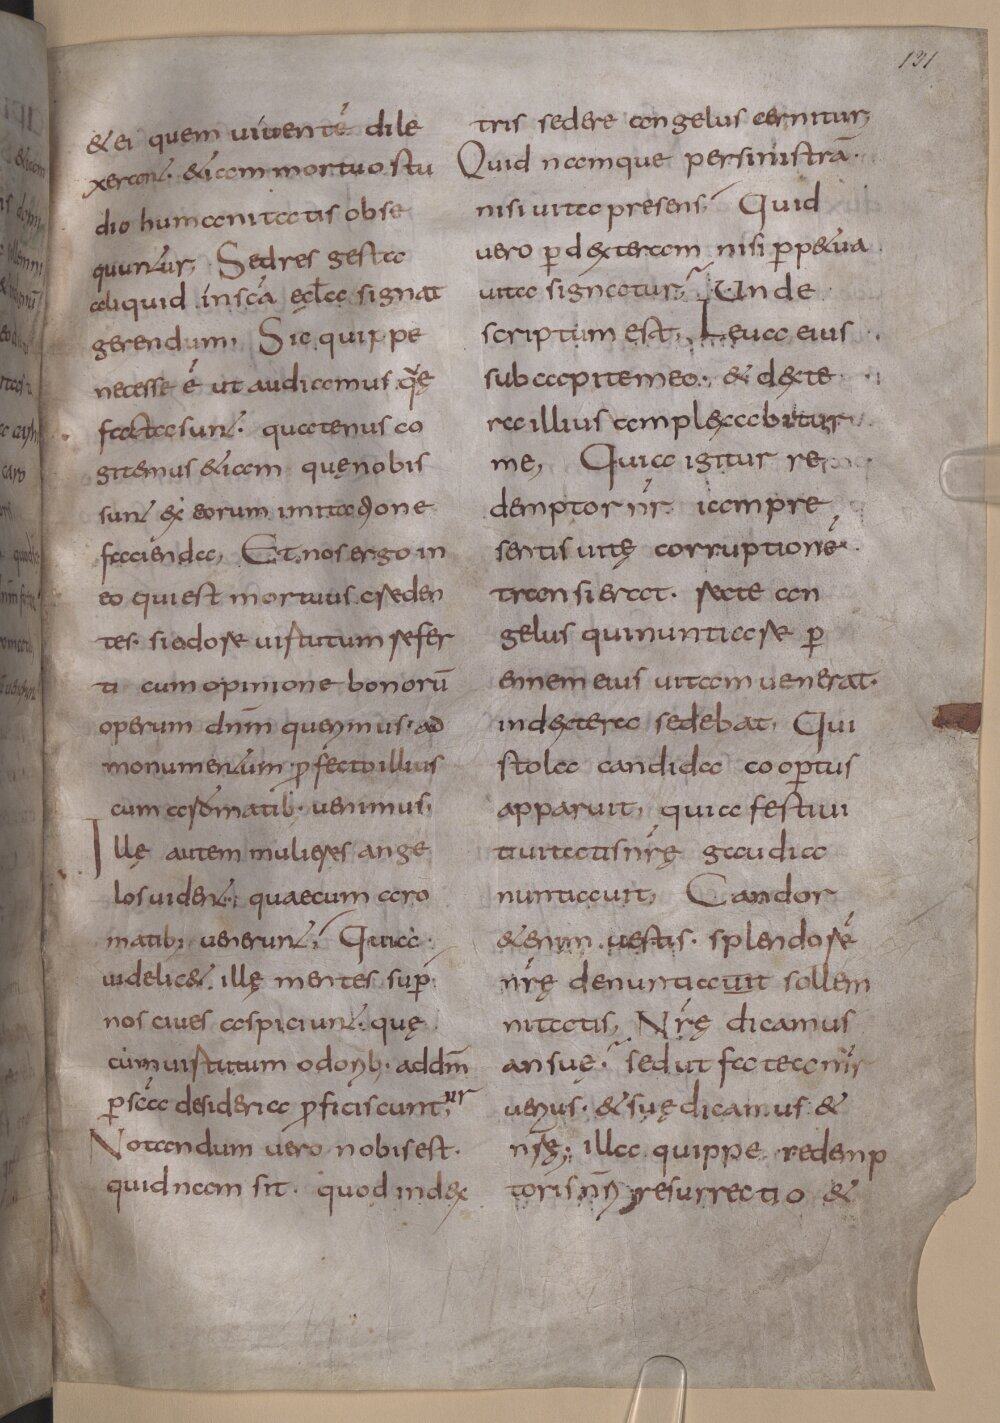 131
& ei quem uiuentē dile
xeran&. &iam mortuo stu
dio humanitatis obse
quun&ur, Sed res gesta
aliquid in scā ęcl̄a signat
gerendum, Sic quippe
necesse ē ut audiamus q̄ę
facta sun&. quatenus co
gitemus &iam quę nobis
sun& ex eorum imitatione
facienda, Et nos ergo in
eo qui est mortuus creden
tes. si odore uirtutum refer
ti cum opinione bonorū
operum dn̄m querimus. ad
monumen&um ꝓfecto illius
cum aromatib; uenimus,
Illę autem mulieres ange
los uiden&, quae cum aro
matib; uenerun&, Quia
uidelic&. illę mentes sup̄
nos ciues aspiciun&. quę
cum uirtutum odorib; ad dn̄m
ꝑ scā desideria ꝓficiscuntur,
Notandum uero nobis est.
quidnam sit. quod in dex
tris sedere angelus cernitur,
Quid namque per sinistrā.
nisi uita presens, Quid
uero ꝑ dexteram nisi ꝑp&ua
uita signatur, Unde
scriptum est, Leua eius
sub capite meo, & dexte
ra illius complexabitur
me, Quia igitur re
demptor nr̄ iam pre
sentis uitę corruptionē
transierat. recte an
gelus qui nuntiare ꝑ
ennem eius uitam uenerat.
in dextera sedebat, Qui
stola candida coopertus
apparuit, quia festiui
tiuitatis nr̄ę gaudia
nuntiauit, Candor
&enim uestis. splendorē
nr̄ę denuntiauit sollem
nitatis, Nr̄ę dicamus
an suę, sed ut fateamur
uerius. & suę dicamus &
nr̄ę, illa quippe redemp
toris nr̄i resurrectio &